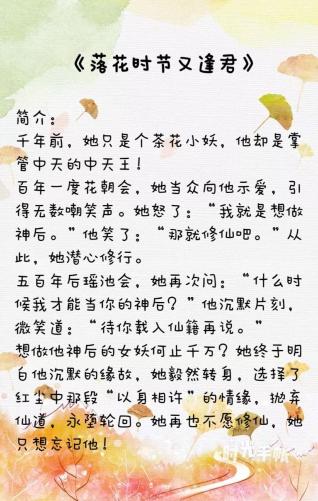 《落花时节又逢君》
简介：
千年前，她只是个茶花小妖，他却是掌
管中天的中天王！
百年一度花朝会，她当众向他示爱，引
得无数嘲笑声。她怒了：“我就是想做
神后。”他笑了：“那就修仙吧。”从
此，她潜心修行。
五百年后瑶池会，她再次问：“什么时
候我才能当你的神后？”他沉默片刻，
微笑道：“待你载入仙籍再说。”
想做他神后的女妖何止千万？她终于明
白他沉默的缘故，她毅然转身，选择了
红尘中那段“以身相许”的情缘，抛弃
仙道，永堕轮回。她再也不愿修仙，她
只想忘记他！